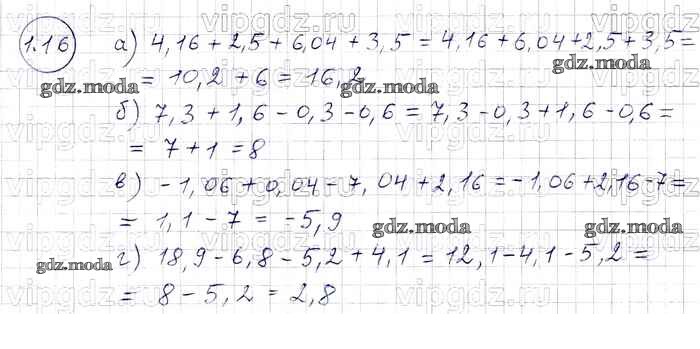 1.16 а) 4,16 + 2,5 + 6,04 + 3,5 = 4,16 + 6,04 + 2,5 + 3,5 =
= 10,2 + 6 = 16,2
б) 7,3 + 1,6 - 0,3 - 0,6 = 7,3 - 0,3 + 1,6 - 0,6 =
= 7 + 1 = 8
в) - 1,06 + 0,04 - 7,04 + 2,16 = - 1,06 + 2,16 - 7 =
= 1,1 - 7 = - 5,9
г) 18,9 - 6,8 - 5,2 + 4,1 = 12,1 - 4,1 - 5,2 =
= 8 - 5,2 = 2,8
vipgdz.ru
gdz.moda
gdz.moda
gdz.moda
gdz.moda
gdz.moda
gdz.moda